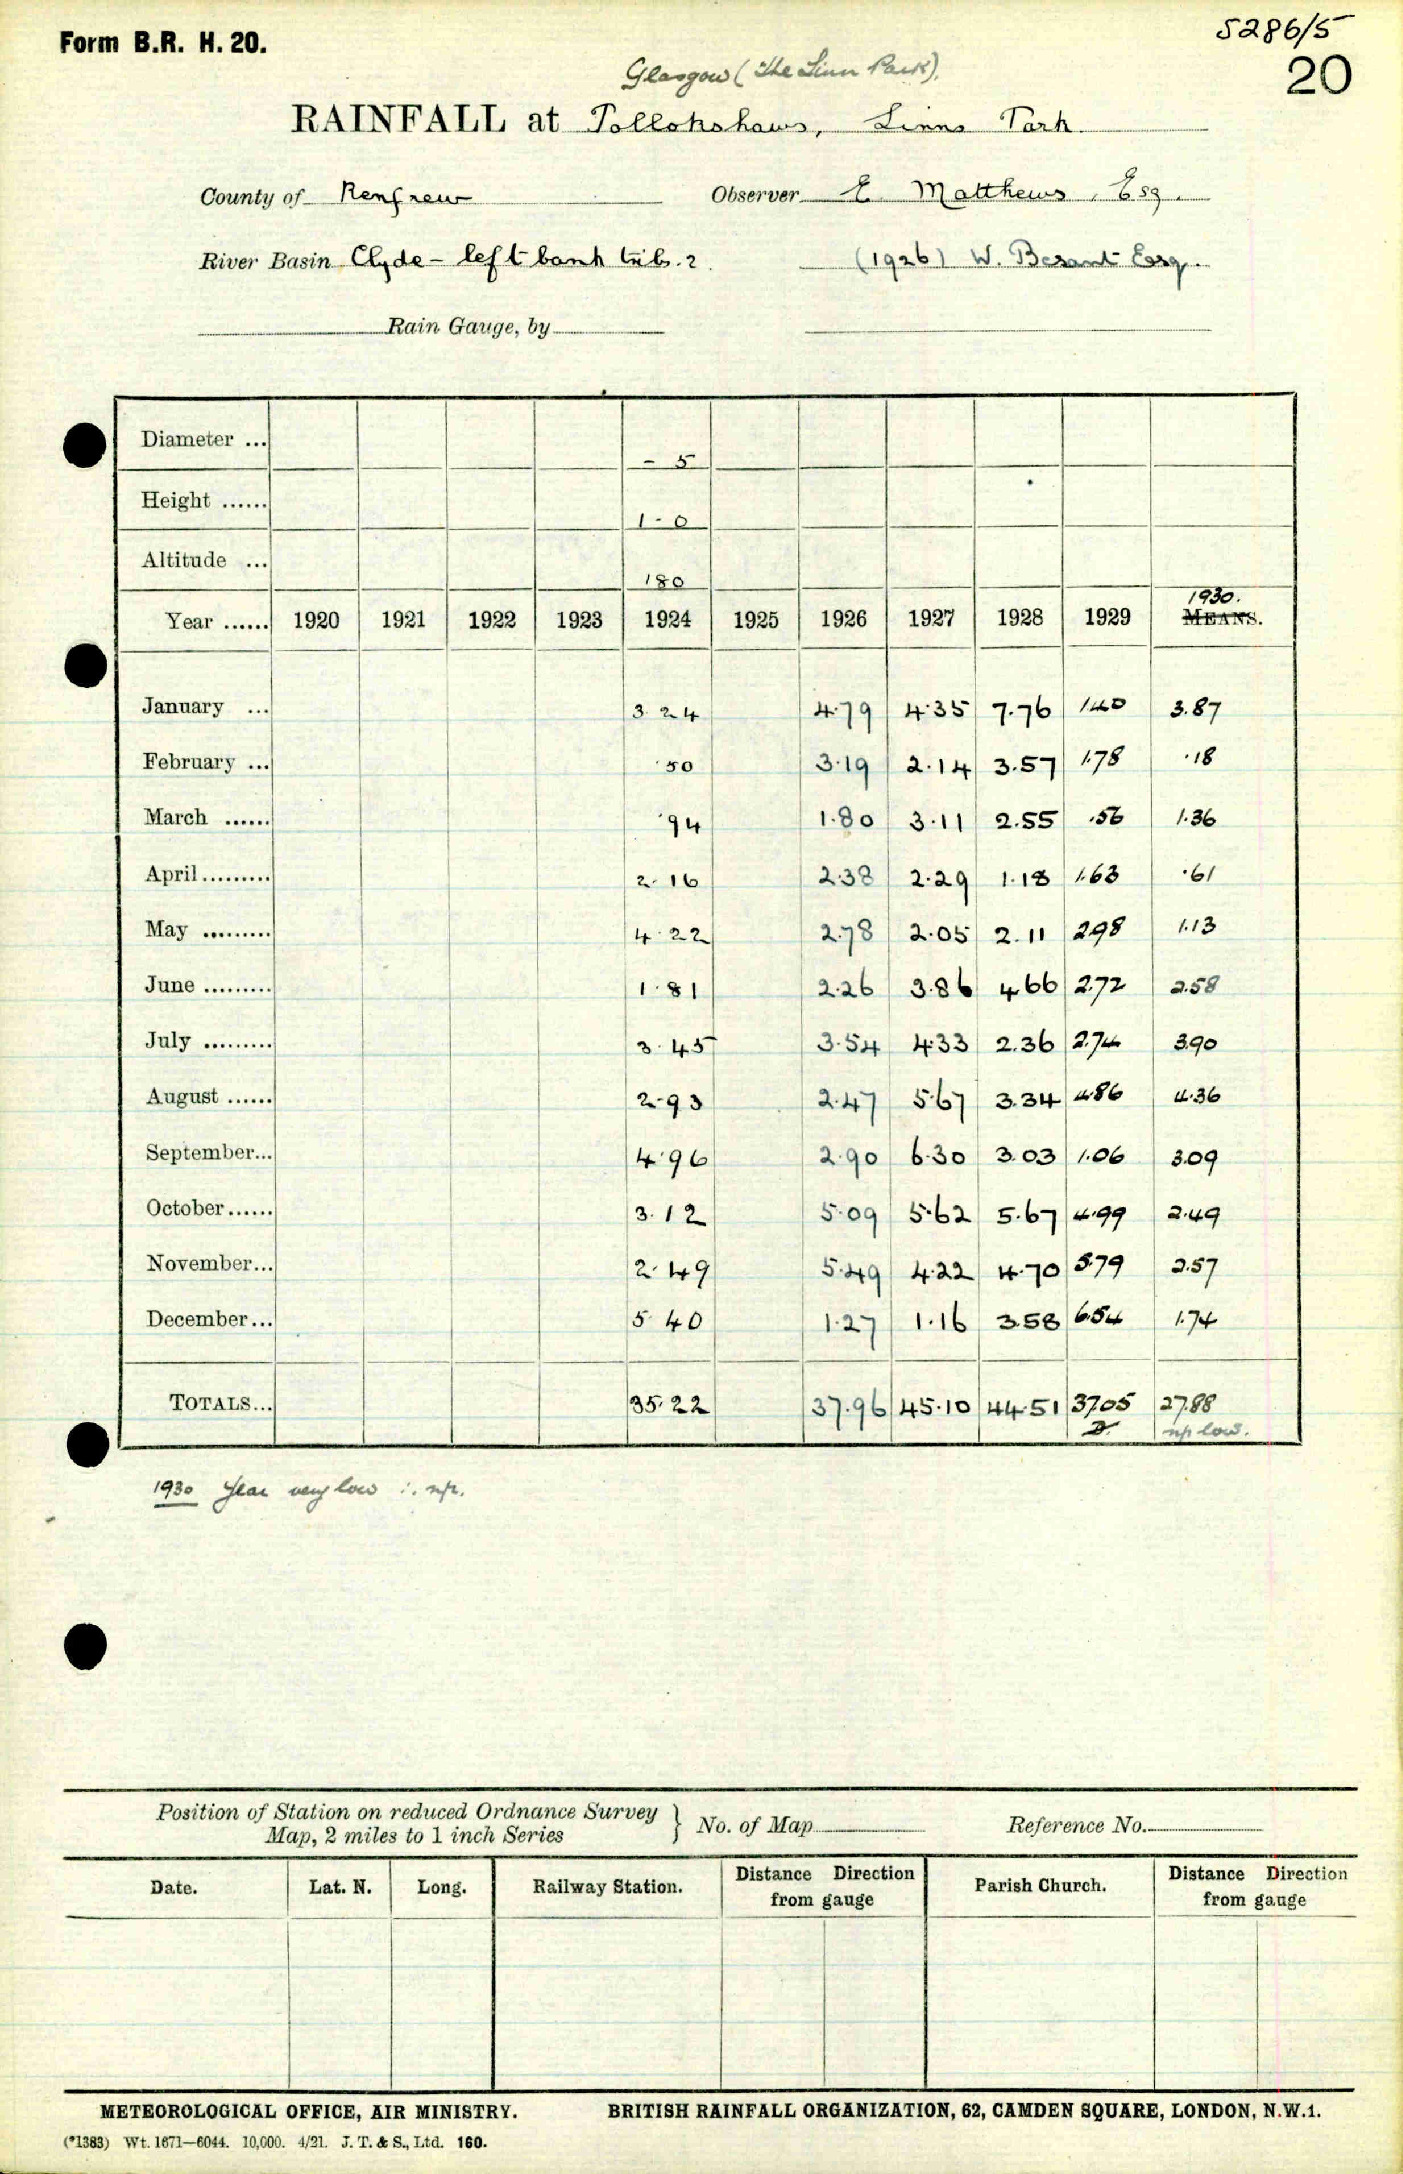 Form B.R. H. 20.
5286/5
20
Glasgow (The Linn Park).
RAINFALL at Pollokshaws, Linns Park.
County of Renfrew Observer E Matthews, Esq.
River Basin Clyde - left bank trib. 2. (1926) W. Besant Esq.
Rain Gauge, by
Diameter ... - 5
Height ...... 1 - 0
Altitude ... 180
Year ...... 1920 1921 1922 1923 1924 1925 1926 1927 1928 1929 1930. MEANS.
January ... 3.24 4.79 4.35 7.76 1.40 3.87
February ... .50 3.19 2.14 3.57 1.78 .18
March ...... .94 1.80 3.11 2.55 .56 1.36
April ......... 2.16 2.38 2.29 1.18 1.63 .61
May ......... 4.22 2.78 2.05 2.11 2.98 1.13
June ......... 1.81 2.26 3.86 4.66 2.72 2.58
July ......... 3.45 3.54 4.33 2.36 2.74 3.90
August ...... 2.93 2.47 5.67 3.34 4.86 4.36
September... 4.96 2.90 6.30 3.03 1.06 3.09
October...... 3.12 5.09 5.62 5.67 4.99 2.49
November... 2.49 5.49 4.22 4.70 5.79 2.57
December... 5.40 1.27 1.16 3.58 6.54 1.74
TOTALS... 35.22 37.96 45.10 44.51 37.05 27.88
np low.
1930 Year very low ∴ np.
Position of Station on reduced Ordnance Survey
Map, 2 miles to 1 inch Series } No. of Map Reference No.
Date. Lat. N. Long. Railway Station. Distance Direction from gauge Parish Church. Distance Direction from gauge
METEOROLOGICAL OFFICE, AIR MINISTRY. BRITISH RAINFALL ORGANIZATION, 62, CAMDEN SQUARE, LONDON, N.W.1.
(*1383) Wt. 1671—6044. 10,000. 4/21. J. T. & S., Ltd. 160.